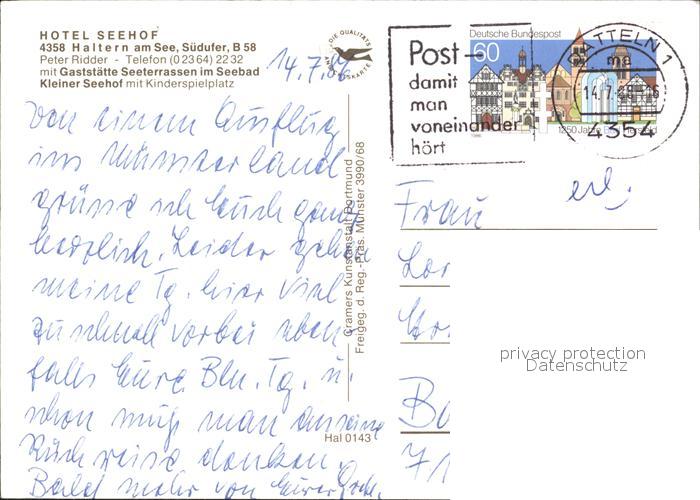 HOTEL SEEHOF
4358 Haltern am See, Südufer, B 58
Peter Ridder - Telefon (0 23 64) 22 32
mit Gaststätte Seeterrassen im Seebad
Kleiner Seehof mit Kinderspielplatz
DIE QUALITÄTS
14.7.86
Von einem Ausflug
ins Münsterland
grüsse ich Euch ganz
herzlich. Leider gehen
meine Tg. hier viel
zu schnell vorbei eben-
falls Eure Bln. Tg. u.
schon muß man an seine
Rückreise denken.
Bald mehr von Eurer
Cramers Kunstanstalt Dortmund
Freigeg. d. Reg.-Präs. Münster 3990/68
Hal 0143
Post-
damit
man
voneinander
hört
Deutsche Bundespost
60
1250 Jahre Bad Hersfeld
1986
DATTELN 1
ma
14.7.86-16
4354
erl.
Frau
Lor
Bo
71
privacy protection
Datenschutz